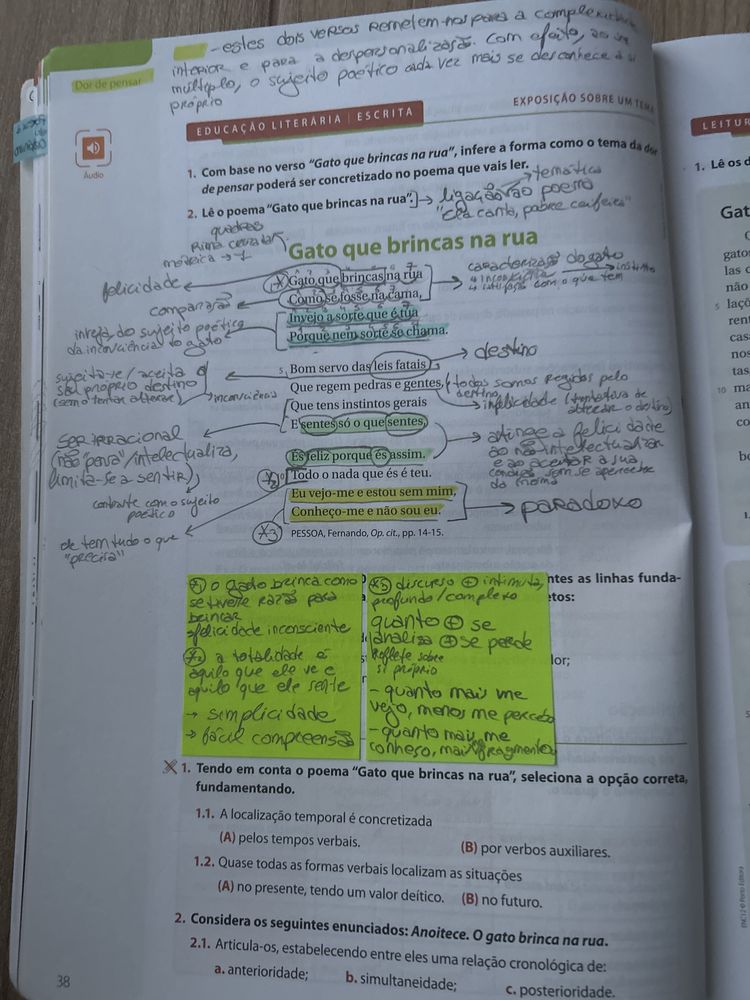 Dor de pensar
- estes dois versos remetem-nos para a complexidade
interior e para a despersonalização. Com efeito, ao
múltiplo, o sujeito poético cada vez mais se desconhece a si
próprio
Áudio
EDUCAÇÃO LITERÁRIA | ESCRITA
EXPOSIÇÃO SOBRE UM TEMA
LEITUR
1. Com base no verso "Gato que brincas na rua", infere a forma como o tema da dor
de pensar poderá ser concretizado no poema que vais ler.
2. Lê o poema "Gato que brincas na rua".
temática
ligação ao poema
"Ela canta, pobre ceifeira"
quadras
Rima cruzada
métrica → 7
Gato que brincas na rua
felicidade
comparação
inveja do sujeito poético
da inconsciência do gato
*1
Gato que brincas na rua
Como se fosse na cama,
Invejo a sorte que é tua
Porque nem sorte se chama.
caracterização do gato
inconsciência
instinto
satisfação com o que tem
5 Bom servo das leis fatais
Que regem pedras e gentes,
Que tens instintos gerais
E sentes só o que sentes,
destino
sujeita-se/aceita o
seu próprio destino
(sem o tentar alterar)
inconsciência
todos somos regidos pelo
destino
infelicidade (tentativa de
alterar o destino)
ser irracional
(não "pensa"/intelectualiza,
limita-se a sentir)
contraste com o sujeito
poético
ele tem tudo o que
"precisa"
És feliz porque és assim.
*2
10 Todo o nada que és é teu.
Eu vejo-me e estou sem mim,
Conheço-me e não sou eu.
*3
atinge a felicidade
ao não intelectualizar
e ao aceitar a sua
condição sem se aperceber
da mesma
paradoxo
PESSOA, Fernando, Op. cit., pp. 14-15.
*1 o gato brinca como
se tivesse razão para
brincar
felicidade inconsciente
*2 a totalidade é
aquilo que ele vê e
aquilo que ele sente
→ simplicidade
→ fácil compreensão
*3 discurso + intimista,
profundo/complexo
quanto + se
analisa + se perde
reflete sobre
si próprio
- quanto mais me
vejo, menos me percebo
- quanto mais me
conheço, mais fragmento
ntes as linhas funda-
etos:
lor;
1. Tendo em conta o poema "Gato que brincas na rua", seleciona a opção correta,
fundamentando.
1.1. A localização temporal é concretizada
(A) pelos tempos verbais. (B) por verbos auxiliares.
1.2. Quase todas as formas verbais localizam as situações
(A) no presente, tendo um valor deítico. (B) no futuro.
2. Considera os seguintes enunciados: Anoitece. O gato brinca na rua.
2.1. Articula-os, estabelecendo entre eles uma relação cronológica de:
a. anterioridade; b. simultaneidade; c. posterioridade.
38
1. Lê os d
Gat
gato
las
não
5 laço
rent
cas
nos
tas
10 ma